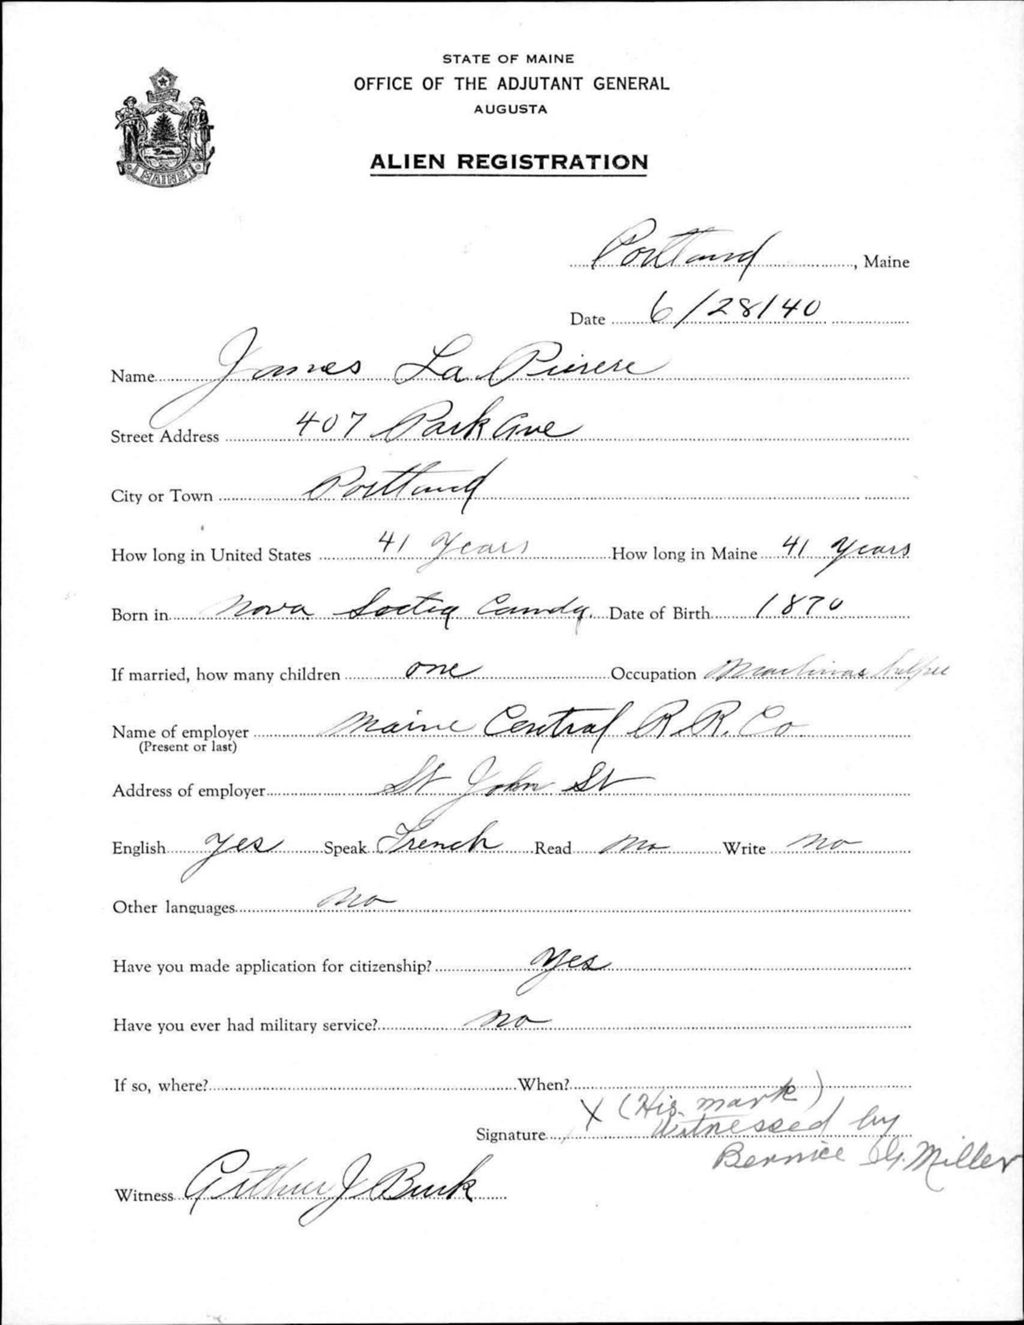 STATE OF MAINE
OFFICE OF THE ADJUTANT GENERAL
AUGUSTA
MAINE
ALIEN REGISTRATION
Portland, Maine
Date 6/28/40
Name James La Pierere
Street Address 407 Park Ave
City or Town Portland
How long in United States 41 Years How long in Maine 41 Years
Born in Nova Soctia Canada. Date of Birth 1870
If married, how many children one Occupation Machinas helper
Name of employer Maine Central R.R. Co.
(Present or last)
Address of employer St John St
English yes Speak French Read no Write no
Other languages no
Have you made application for citizenship? Yes
Have you ever had military service? no
If so, where? When?
X (His mark)
Signature Witnessed by
Bernice G. Miller
Witness Arthur J Burk